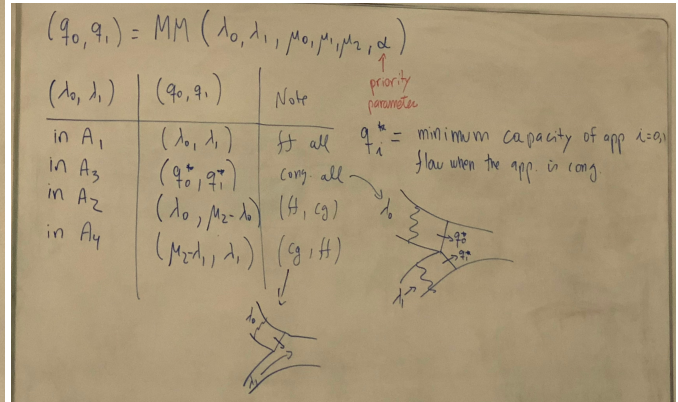 (q₀, q₁) = MM (λ₀, λ₁, μ₀, μ₁, μ₂, α)
priority
parameter
(λ₀, λ₁) (q₀, q₁) Note
in A₁ (λ₀, λ₁) ff all
in A₃ (q₀*, q₁*) cong. all
in A₂ (λ₀, μ₂-λ₀) (ff, cg)
in A₄ (μ₂-λ₁, λ₁) (cg, ff)
qᵢ* = minimum capacity of app i=0,1
flow when the app. is cong.
λ₀
q₀*
q₁*
λ₁
λ₀
λ₁